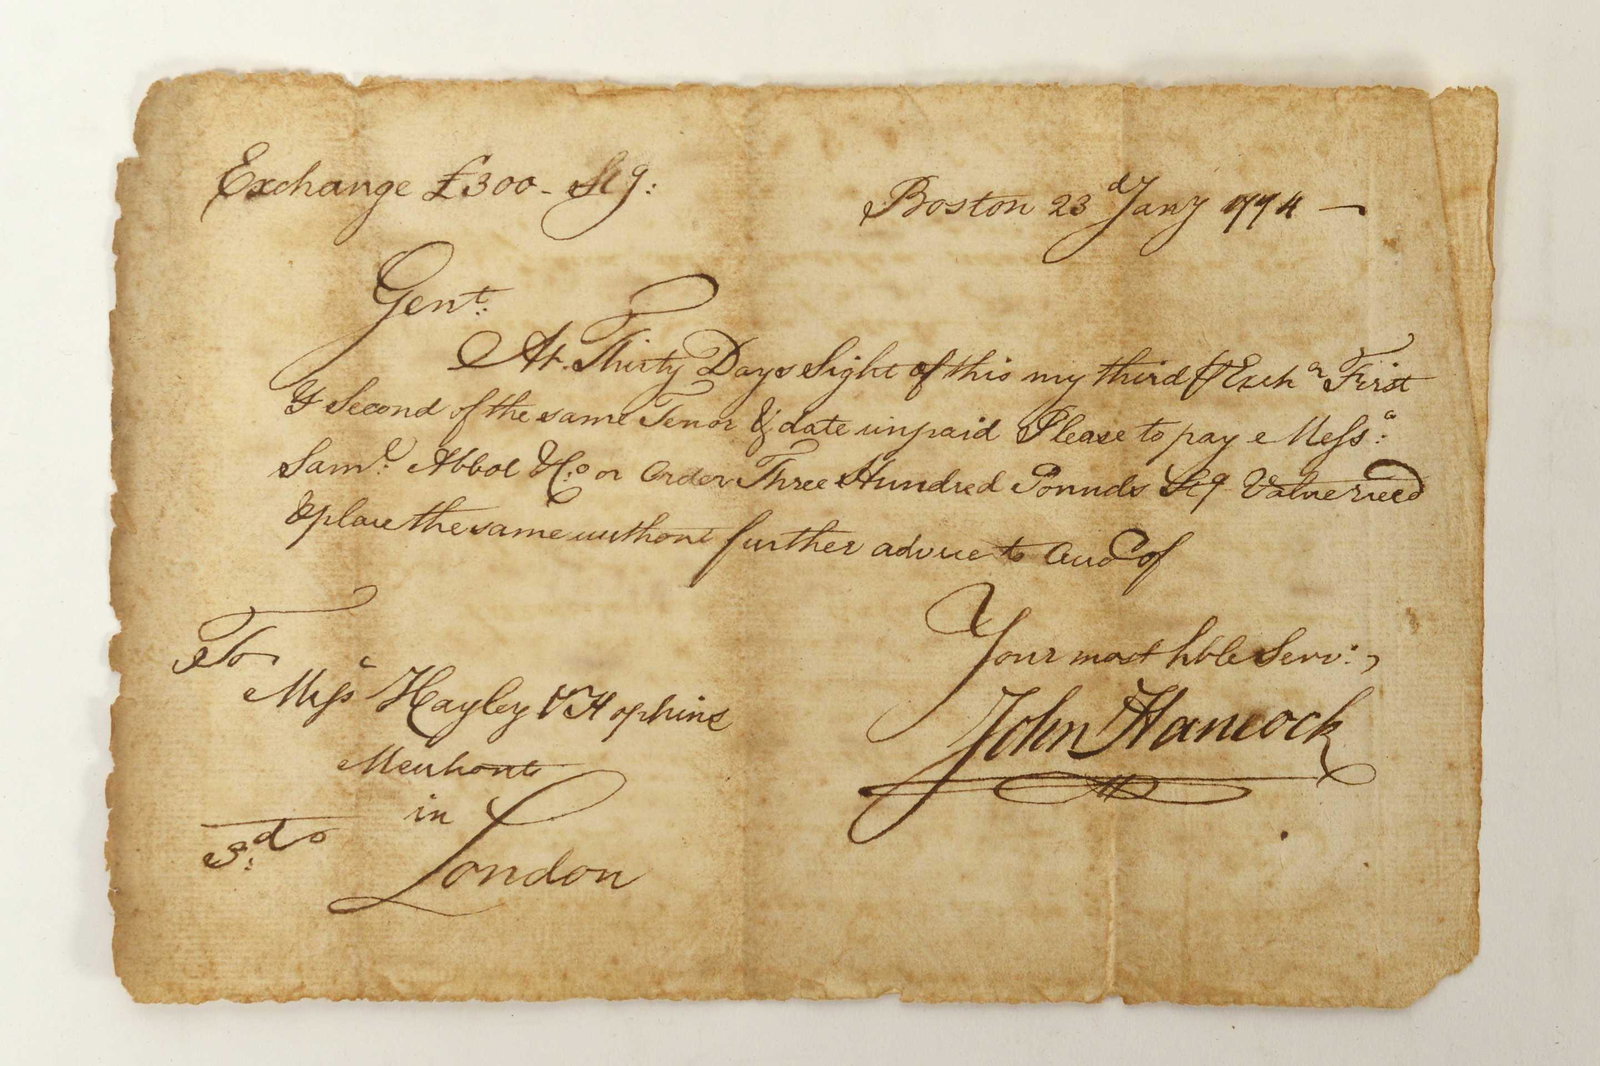 Exchange £300 - Stg:
Boston 23d Jany 1774 —
Gent:
At Thirty Days Sight of this my third of Exch:a First
& Second of the same Tenor & date unpaid Please to pay Messrs:
Sam:l Abbot & Co: or Order Three Hundred Pounds Stg Value recd
& place the same without further advice to Acco of
Your most hble Serv:t,
John Hancock
To
Messrs Hayley & Hopkins
Merchants
in
London
3:d